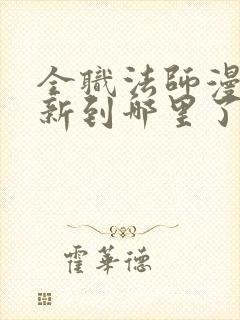 全職法師漫
新到哪里了
霍華德